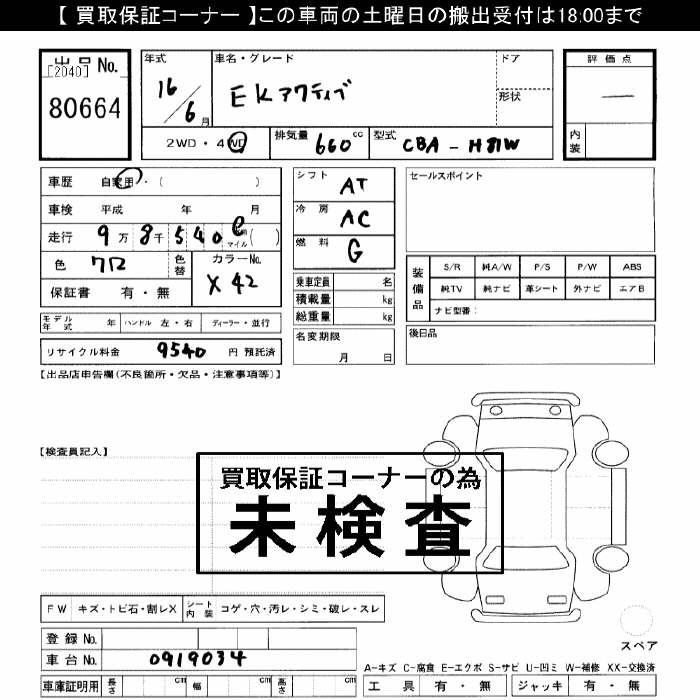 【 買取保証コーナー 】この車両の土曜日の搬出受付は18:00まで
出品 No.
[2040]
80664
年式
16／6月
車名・グレード
EKアクティブ
ドア
形状
評価点
—
内装
2WD・4WD
排気量 660 cc
型式 CBA-H81W
車歴 自家用・( )
車検 平成 年 月
走行 9万8千540
マイル( )
色 クロ
色替
カラーNo.
X42
保証書 有・無
シフト AT
冷房 AC
燃料 G
乗車定員 名
積載量 kg
総重量 kg
名変期限
月 日
セールスポイント
装備品
S/R 純A/W P/S P/W ABS
純TV 純ナビ 革シート 外ナビ エアB
ナビ型番：
後日品
モデル年式 年 ハンドル 左・右 ディーラー・並行
リサイクル料金 9540 円 預託済
【出品店申告欄(不良箇所・欠品・注意事項等)】
【検査員記入】
買取保証コーナーの為
未検査
FW キズ・トビ石・割レX シート内装 コゲ・穴・汚レ・シミ・破レ・スレ
登録 No.
車台 No. 0919034
車庫証明用 長さ cm 幅 cm 高さ cm
スペア
A-キズ C-腐食 E-エクボ S-サビ U-凹ミ W-補修 XX-交換済
工具 有・無 ジャッキ 有・無